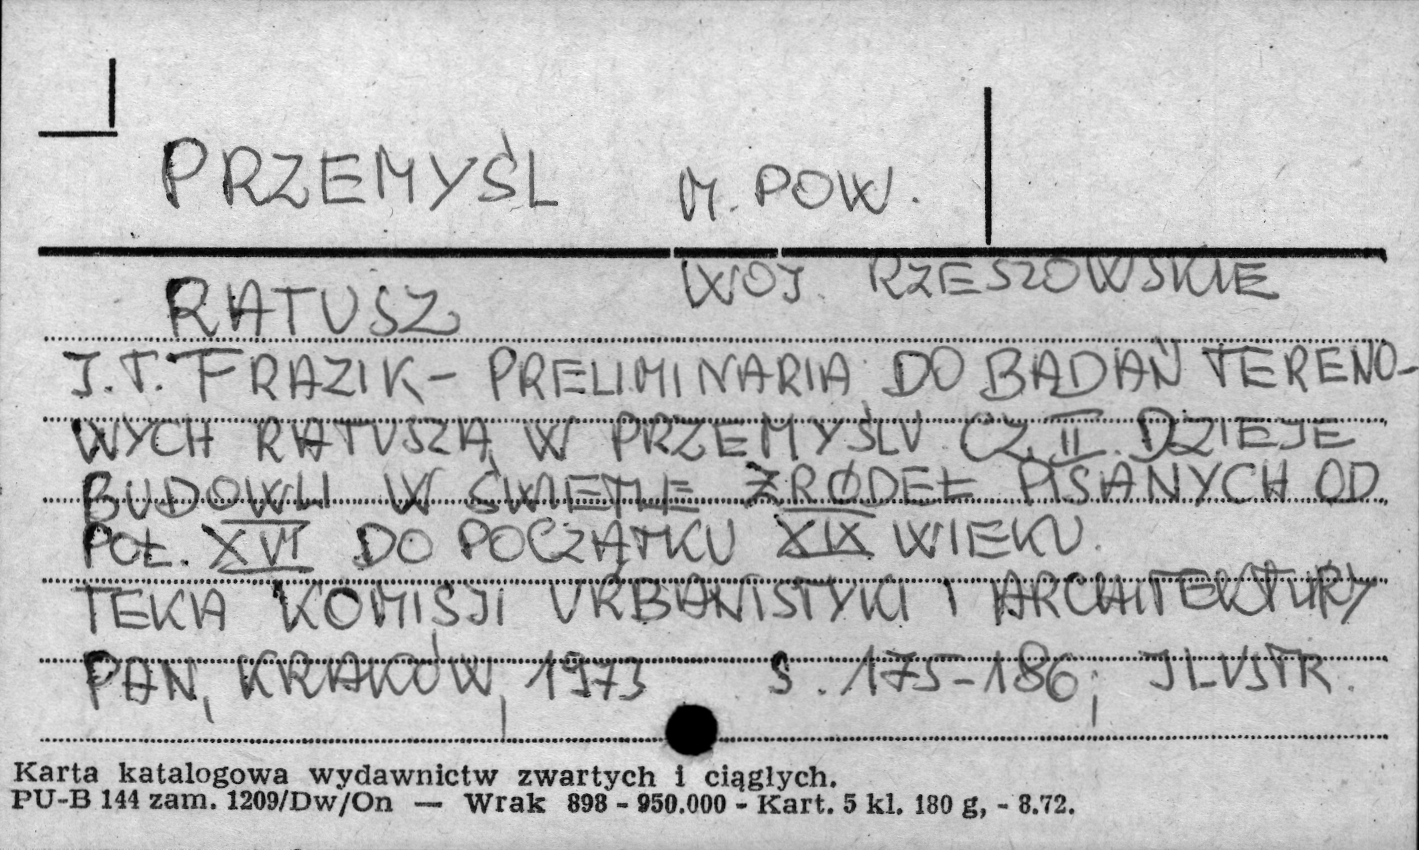 PRZEMYŚL M. POW.
RATUSZ WOJ. RZESZOWSKIE
J.T. FRAZIK - PRELIMINARIA DO BADAŃ TERENO-
WYCH RATUSZA W PRZEMYŚLU CZ. II. DZIEJE
BUDOWLI W ŚWIETLE ŹRÓDEŁ PISANYCH OD
POŁ. XVI DO POCZĄTKU XIX WIEKU.
TEKA KOMISJI URBANISTYKI I ARCHITEKTURY
PAN, KRAKÓW, 1973 S. 175-186; ILUSTR.
Karta katalogowa wydawnictw zwartych i ciągłych.
PU-B 144 zam. 1209/Dw/On — Wrak 898 - 950.000 - Kart. 5 kl. 180 g, - 8.72.